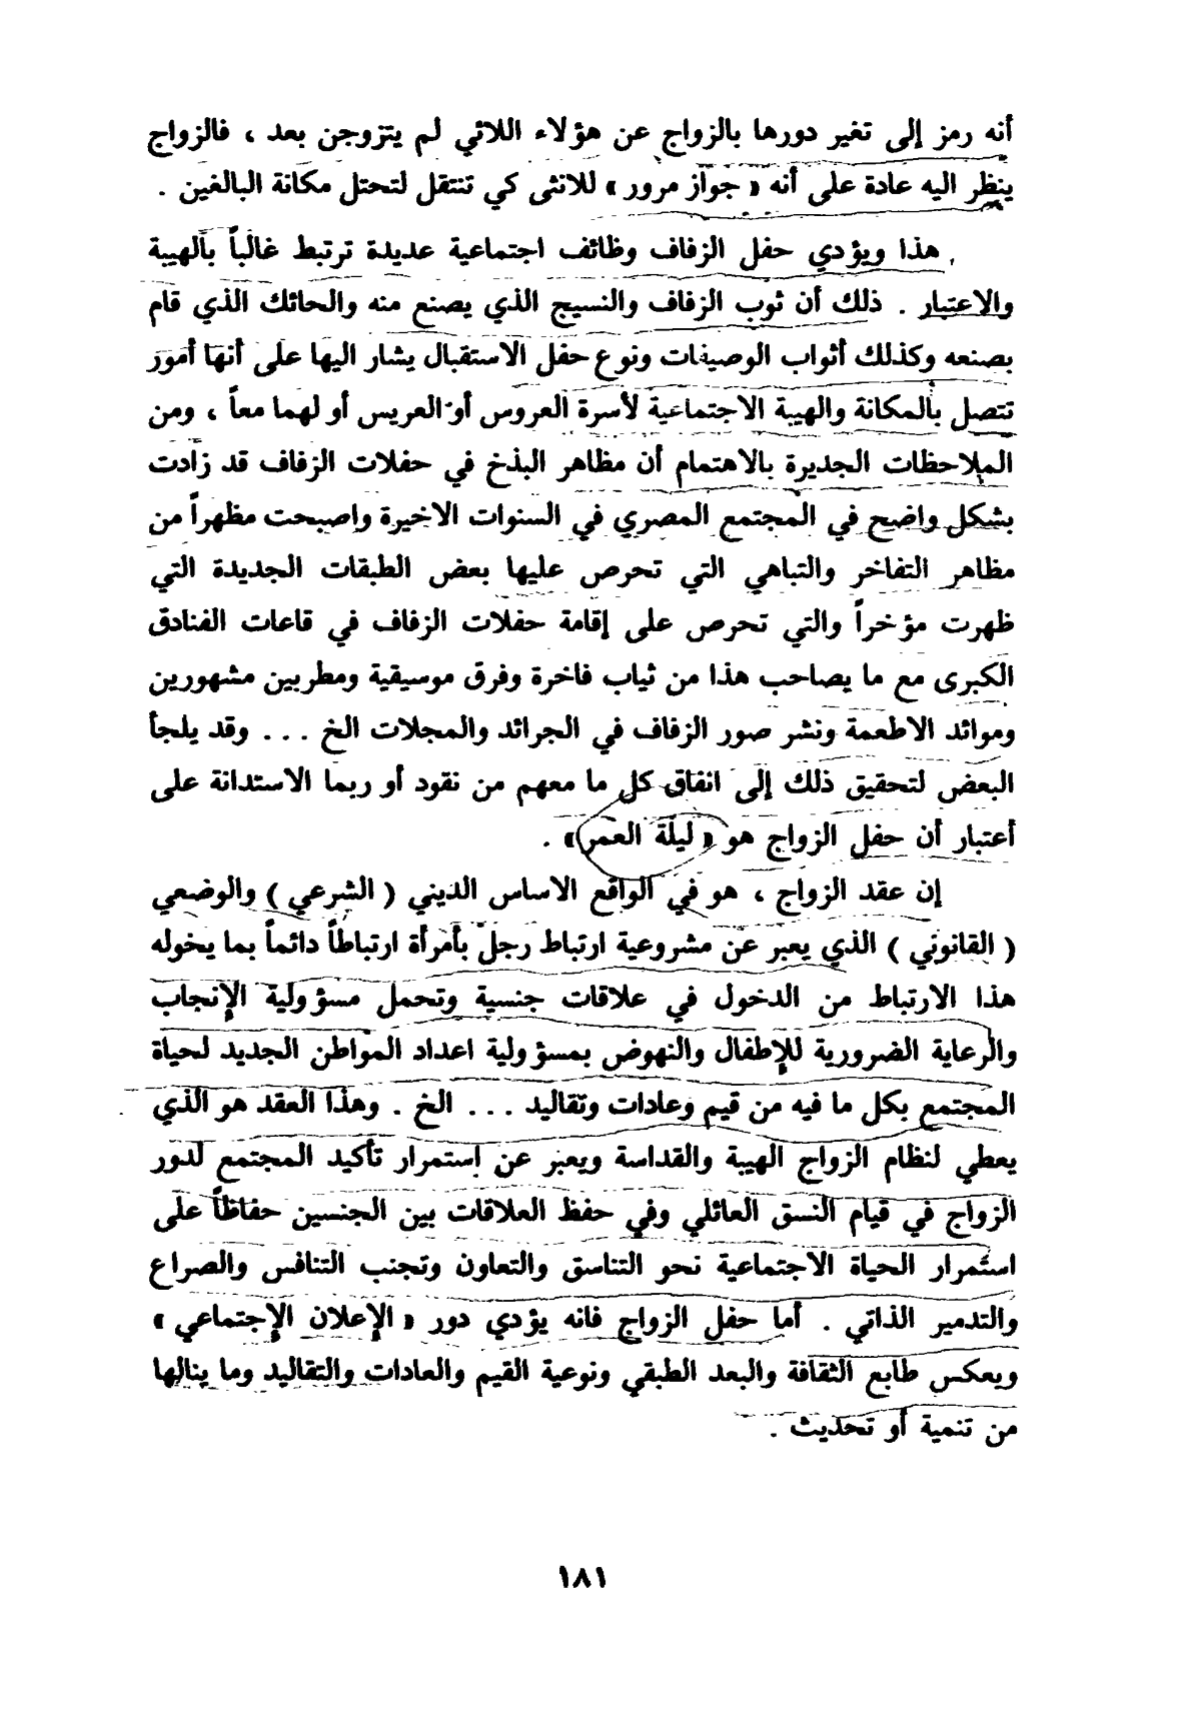 أنه رمز إلى تغير دورها بالزواج عن هؤلاء اللائي لم يتزوجن بعد ، فالزواج
ينظر اليه عادة على أنه « جواز مرور » للانثى كي تنتقل لتحتل مكانة البالغين .
هذا ويؤدي حفل الزفاف وظائف اجتماعية عديدة ترتبط غالباً بالهيبة
والاعتبار . ذلك أن ثوب الزفاف والنسيج الذي يصنع منه والحائك الذي قام
بصنعه وكذلك أثواب الوصيفات ونوع حفل الاستقبال يشار اليها على أنها أمور
تتصل بالمكانة والهيبة الاجتماعية لأسرة العروس أو العريس أو لهما معاً ، ومن
الملاحظات الجديرة بالاهتمام أن مظاهر البذخ في حفلات الزفاف قد زادت
بشكل واضح في المجتمع المصري في السنوات الاخيرة واصبحت مظهراً من
مظاهر التفاخر والتباهي التي تحرص عليها بعض الطبقات الجديدة التي
ظهرت مؤخراً والتي تحرص على إقامة حفلات الزفاف في قاعات الفنادق
الكبرى مع ما يصاحب هذا من ثياب فاخرة وفرق موسيقية ومطربين مشهورين
وموائد الاطعمة ونشر صور الزفاف في الجرائد والمجلات الخ ... وقد يلجأ
البعض لتحقيق ذلك إلى انفاق كل ما معهم من نقود أو ربما الاستدانة على
أعتبار أن حفل الزواج هو « ليلة العمر » .
إن عقد الزواج ، هو في الواقع الاساس الديني ( الشرعي ) والوضعي
( القانوني ) الذي يعبر عن مشروعية ارتباط رجل بأمرأة ارتباطاً دائماً بما يخوله
هذا الارتباط من الدخول في علاقات جنسية وتحمل مسؤولية الإنجاب
والرعاية الضرورية للإطفال والنهوض بمسؤولية اعداد المواطن الجديد لحياة
المجتمع بكل ما فيه من قيم وعادات وتقاليد ... الخ . وهذا العقد هو الذي
يعطي لنظام الزواج الهيبة والقداسة ويعبر عن إستمرار تأكيد المجتمع لدور
الزواج في قيام النسق العائلي وفي حفظ العلاقات بين الجنسين حفاظاً على
استمرار الحياة الاجتماعية نحو التناسق والتعاون وتجنب التنافس والصراع
والتدمير الذاتي . أما حفل الزواج فانه يؤدي دور « الإعلان الإجتماعي »
ويعكس طابع الثقافة والبعد الطبقي ونوعية القيم والعادات والتقاليد وما ينالها
من تنمية أو تحديث .
١٨١